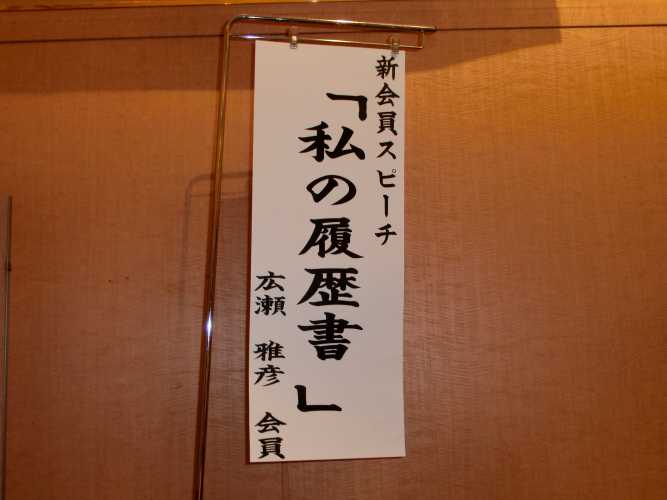 新会員スピーチ
「私の履歴書」
広瀬 雅彦 会員